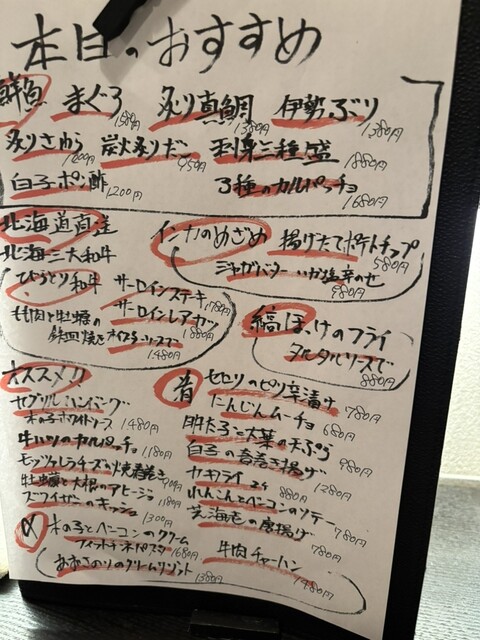 本日のおすすめ
鮮魚 まぐろ 1580円 炙り真鯛 1380円 伊勢ぶり 1380円
炙りさわら 1200円 炭火炙りだこ 950円 刺身三種盛 1880円
白子ポン酢 1200円 3種のカルパッチョ 1680円
北海道直送
北海三大和牛
びらとり和牛 サーロインステーキ 1780円
サーロインレアカツ 1880円
もも肉と牡蠣の
鉄皿焼き オイスターソースで 1480円
インカのめざめ 揚げたてポテトチップ 580円
ジャガバター いか塩辛のせ 980円
縞ほっけのフライ
タルタルソースで 880円
オススメ
ハンバーグ
木の子ホワイトソース 1480円
牛ハツのカルパッチョ 1180円
モッツァレラチーズの焼春巻き
牡蠣と大根のアヒージョ 1180円
ズワイガーのキッシュ 1300円
肴 セセリのピリ辛漬け 780円
にんじんムーチョ 680円
明太子と大葉の天ぷら 980円
白子の春巻き揚げ 1280円
カキフライ 880円
れんこんとベーコンのソテー 780円
芝海老の唐揚げ 780円
〆 木の子とベーコンのクリーム
パスタ 1680円
あおさのりのクリームリゾット 1380円
牛肉チャーハン 1480円